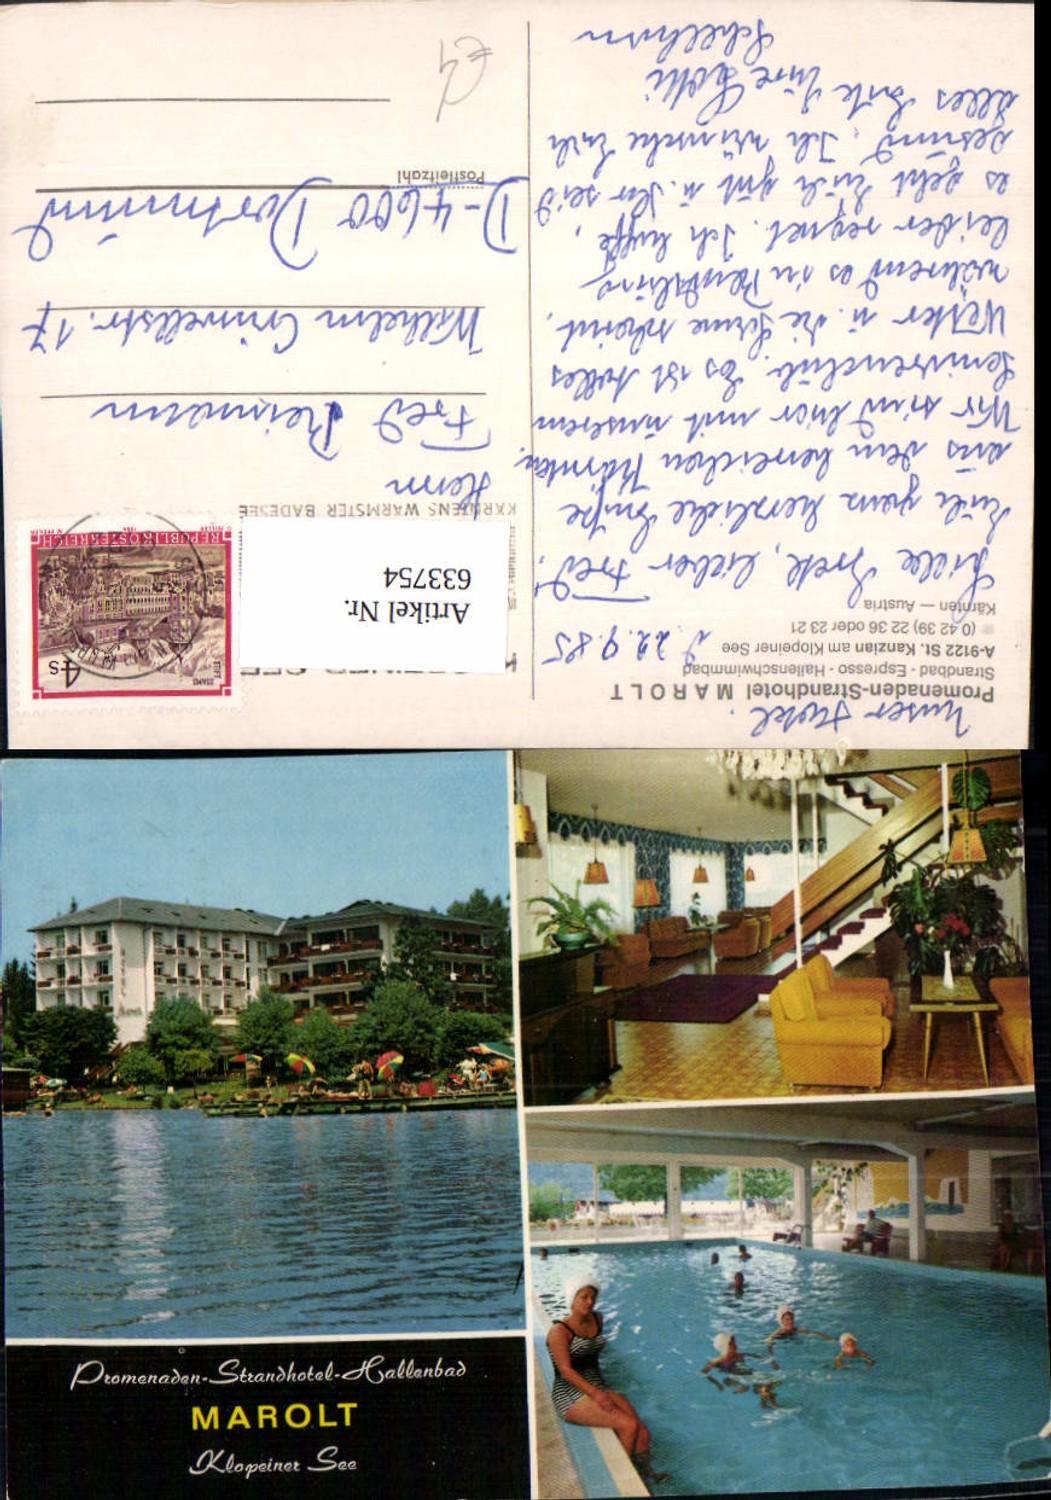 Unser Hotel.
Promenaden-Strandhotel MAROLT
Strandbad - Espresso - Hallenschwimmbad
A-9122 St. Kanzian am Klopeiner See
(0 42 39) 22 36 oder 23 21
Kärnten — Austria
22.9.85
lieber Fred!
Euch ganz herzliche Grüße
aus dem herrlichen Kärnten.
Wir sind hier mit unserem
Seniorenclub. Es ist tolles
Wetter u. die Sonne scheint,
während es in
leider regnet. Ich hoffe,
es geht Euch gut u. Ihr seid
gesund. Ich wünsche Euch
alles Gute Ihre
Schellhorn
4 S
STIFT
STAMS
REPUBLIK ÖSTERREICH
Artikel Nr.
633754
KÄRNTENS WÄRMSTER BADESEE
Herrn
Fred Reimann
Wilhelm Crüwellstr. 17
D-4600 Dortmund
Postleitzahl
€4
Marolt
Promenaden-Strandhotel-Hallenbad
MAROLT
Klopeiner See